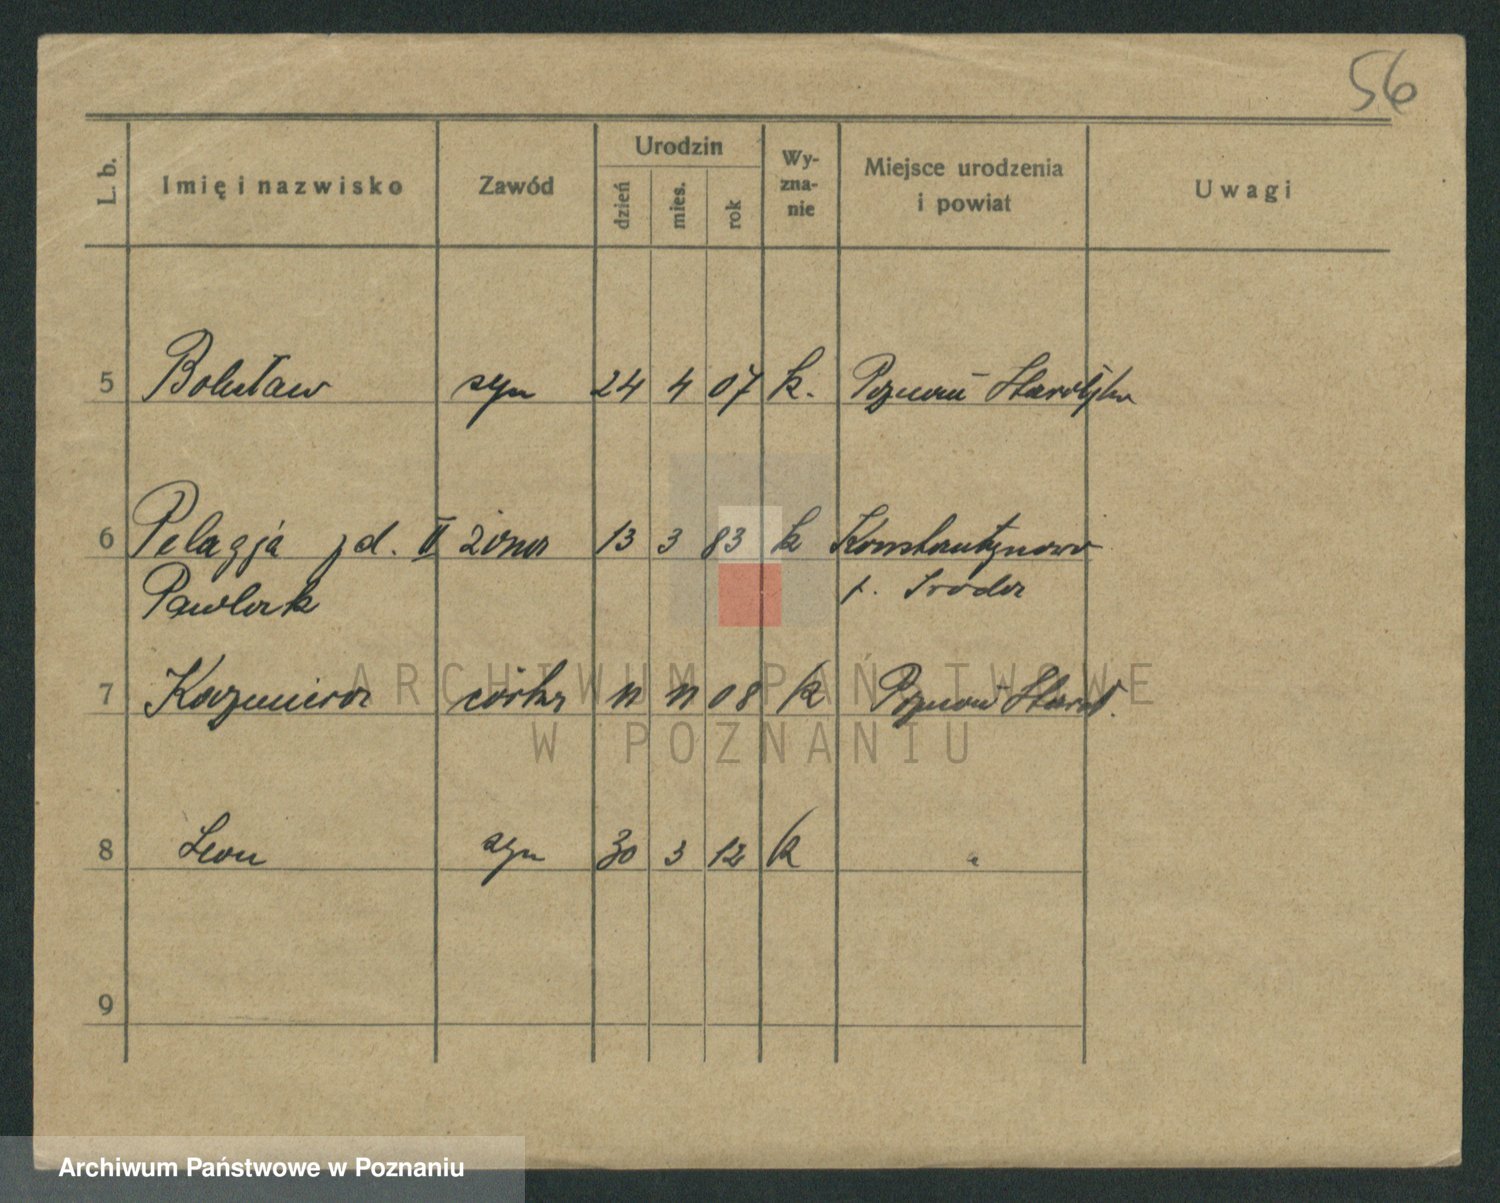 56
L. b.
Imię i nazwisko
Zawód
Urodzin
dzień
mies.
rok
Wy-
zna-
nie
Miejsce urodzenia
i powiat
Uwagi
5 Bolesław syn 24 4 07 k. Poznań
6 Pelagja II żona 13 3 83 k Konstantynowo
Pawlak p. Środa
7 Kazimiera córka 11 11 08 k Poznań Staroł.
8 Leon syn 30 3 12 k "
9
ARCHIWUM PAŃSTWOWE
W POZNANIU
Archiwum Państwowe w Poznaniu